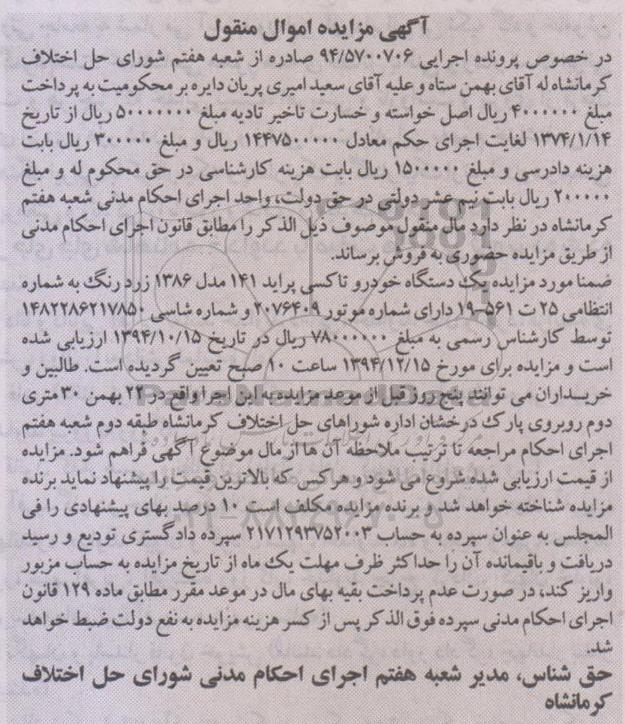 آگهی مزایده اموال منقول
در خصوص پرونده اجرایی ۹۴/۵۷۰۰۷۰۶ صادره از شعبه هفتم شورای حل اختلاف
کرمانشاه له آقای بهمن ستاه و علیه آقای سعید امیری پریان دایره بر محکومیت به پرداخت
مبلغ ۴۰۰۰۰۰۰ ریال اصل خواسته و خسارت تاخیر تادیه مبلغ ۵۰۰۰۰۰۰۰ ریال از تاریخ
۱۳۷۴/۱/۱۴ لغایت اجرای حکم معادل ۱۴۴۷۵۰۰۰۰۰ ریال و مبلغ ۳۰۰۰۰۰ ریال بابت
هزینه دادرسی و مبلغ ۱۵۰۰۰۰۰ ریال بابت هزینه کارشناسی در حق محکوم له و مبلغ
۲۰۰۰۰۰ ریال بابت نیم عشر دولتی در حق دولت، واحد اجرای احکام مدنی شعبه هفتم
کرمانشاه در نظر دارد مال منقول موصوف ذیل الذکر را مطابق قانون اجرای احکام مدنی
از طریق مزایده حضوری به فروش برساند.
ضمنا مورد مزایده یک دستگاه خودرو تاکسی پراید ۱۴۱ مدل ۱۳۸۶ زرد رنگ به شماره
انتظامی ۲۵ ت ۵۶۱–۱۹ دارای شماره موتور ۲۰۷۶۴۰۹ و شماره شاسی ۱۴۸۲۲۸۶۲۱۷۸۵۰
توسط کارشناس رسمی به مبلغ ۷۸۰۰۰۰۰۰ ریال در تاریخ ۱۳۹۴/۱۰/۱۵ ارزیابی شده
است و مزایده برای مورخ ۱۳۹۴/۱۲/۱۵ ساعت ۱۰ صبح تعیین گردیده است. طالبین و
خریداران می توانند پنج روز قبل از موعد مزایده به این اجرا واقع در ۲۲ بهمن ۳۰ متری
دوم روبروی پارک درخشان اداره شوراهای حل اختلاف کرمانشاه طبقه دوم شعبه هفتم
اجرای احکام مراجعه تا ترتیب ملاحظه آن ها از مال موضوع آگهی فراهم شود. مزایده
از قیمت ارزیابی شده شروع می شود و هر کس که بالاترین قیمت را پیشنهاد نماید برنده
مزایده شناخته خواهد شد و برنده مزایده مکلف است ۱۰ درصد بهای پیشنهادی را فی
المجلس به عنوان سپرده به حساب ۲۱۷۱۲۹۳۷۵۲۰۰۳ سپرده دادگستری تودیع و رسید
دریافت و باقیمانده آن را حداکثر ظرف مهلت یک ماه از تاریخ مزایده به حساب مزبور
واریز کند، در صورت عدم پرداخت بقیه بهای مال در موعد مقرر مطابق ماده ۱۲۹ قانون
اجرای احکام مدنی سپرده فوق الذکر پس از کسر هزینه مزایده به نفع دولت ضبط خواهد
شد.
حق شناس، مدیر شعبه هفتم اجرای احکام مدنی شورای حل اختلاف
کرمانشاه